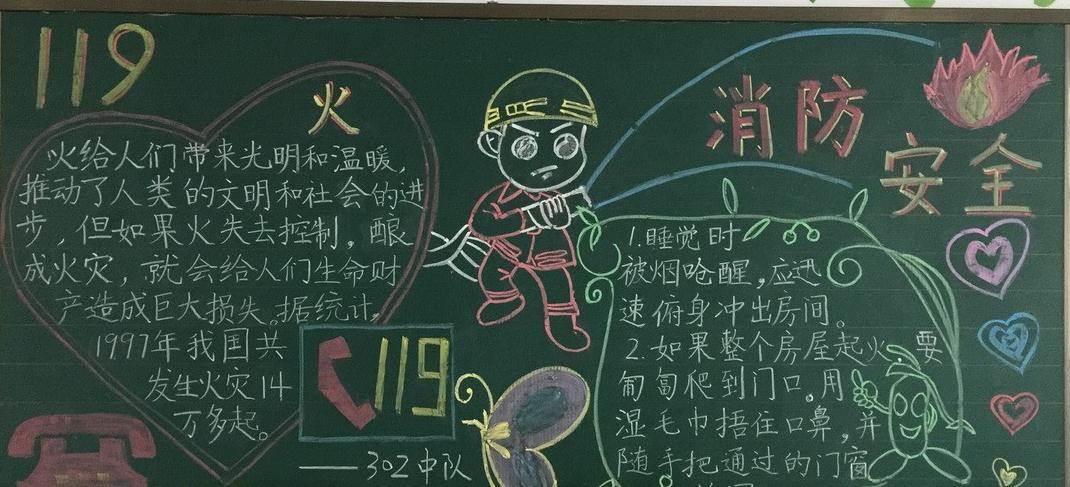 119
火
火给人们带来光明和温暖,
推动了人类的文明和社会的进
步,但如果火失去控制,酿
成火灾,就会给人们生命财
产造成巨大损失。据统计,
1997年我国共
发生火灾14
万多起。
119
——302中队
消防
安全
1.睡觉时
被烟呛醒,应迅
速俯身冲出房间。
2.如果整个房屋起火,要
匍匐爬到门口。用
湿毛巾捂住口鼻,并
随手把通过的门窗